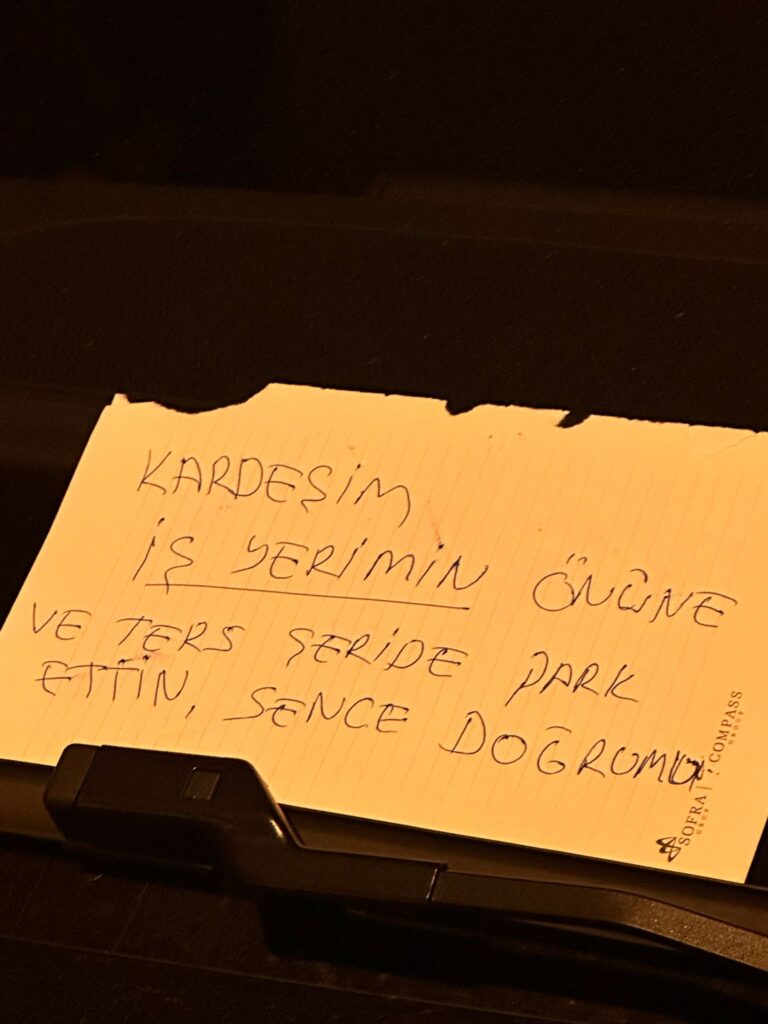 KARDEŞİM
İŞ YERİMİN ÖNÜNE
VE TERS ŞERİDE PARK
ETTİN, SENCE DOĞRUMU
SOFRA | COMPASS
GRUP GROUP